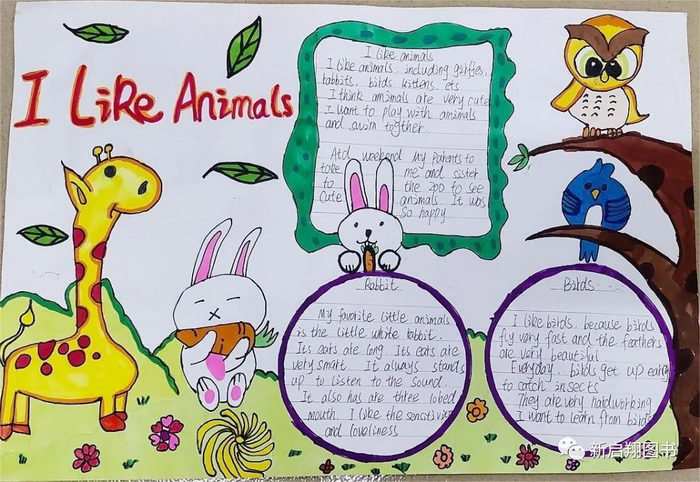 I Like Animals
I like animals
I like animals, including girffes,
rabbits, birds kittens, ets
I think amimals are very cute
I want to play with animals
and swim together
Atd weekend My Parents to
take me and sister
to the zoo to see
cute animals It was
so happy
Rabbit
My favorite little animals
is the little white rabbit.
Its ears are long Its ears are
very smart It always stands
up to listen to the sound
It also has are three lobed
mouth. I like the sensitivity
and loveliness
Birds
I like birds because birds
fly very fast and the feathers
are very beautiful
Everyday, birds get up early
to catch insects
They are very hardworking
I want to learn from birds
新启翔图书